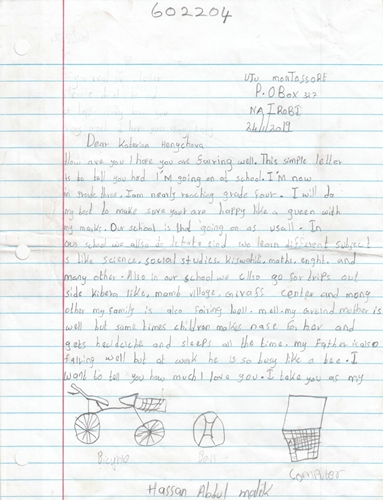 602204
UTU montossore
P.O Box 323
NAIROBI
24/1/2019
Dear Katerina
How are you I hope you are fairing well. This simple letter
is to tell you how I'M going on at school. I'M now
in grade three. I am nearly reaching grade four. I will do
my best to make sure you are happy like a queen with
my marks. Our school is going on as usall. In
our school we also do debate and we learn different subject
s like science, social studies, kiswahili, maths, and
many other. Also in our school we also go for trips out
side kibera like, mamb village, giraff center and many
other my family is also fairing well. mother is
well but some times children makes for her and
gets headache and sleeps all the time. my father is also
fairing well but at work he is so busy like a bee. I
want to tell you how much I love you. I take you as my
Bicycle
Ball
Computer
Hassan Abdul malik